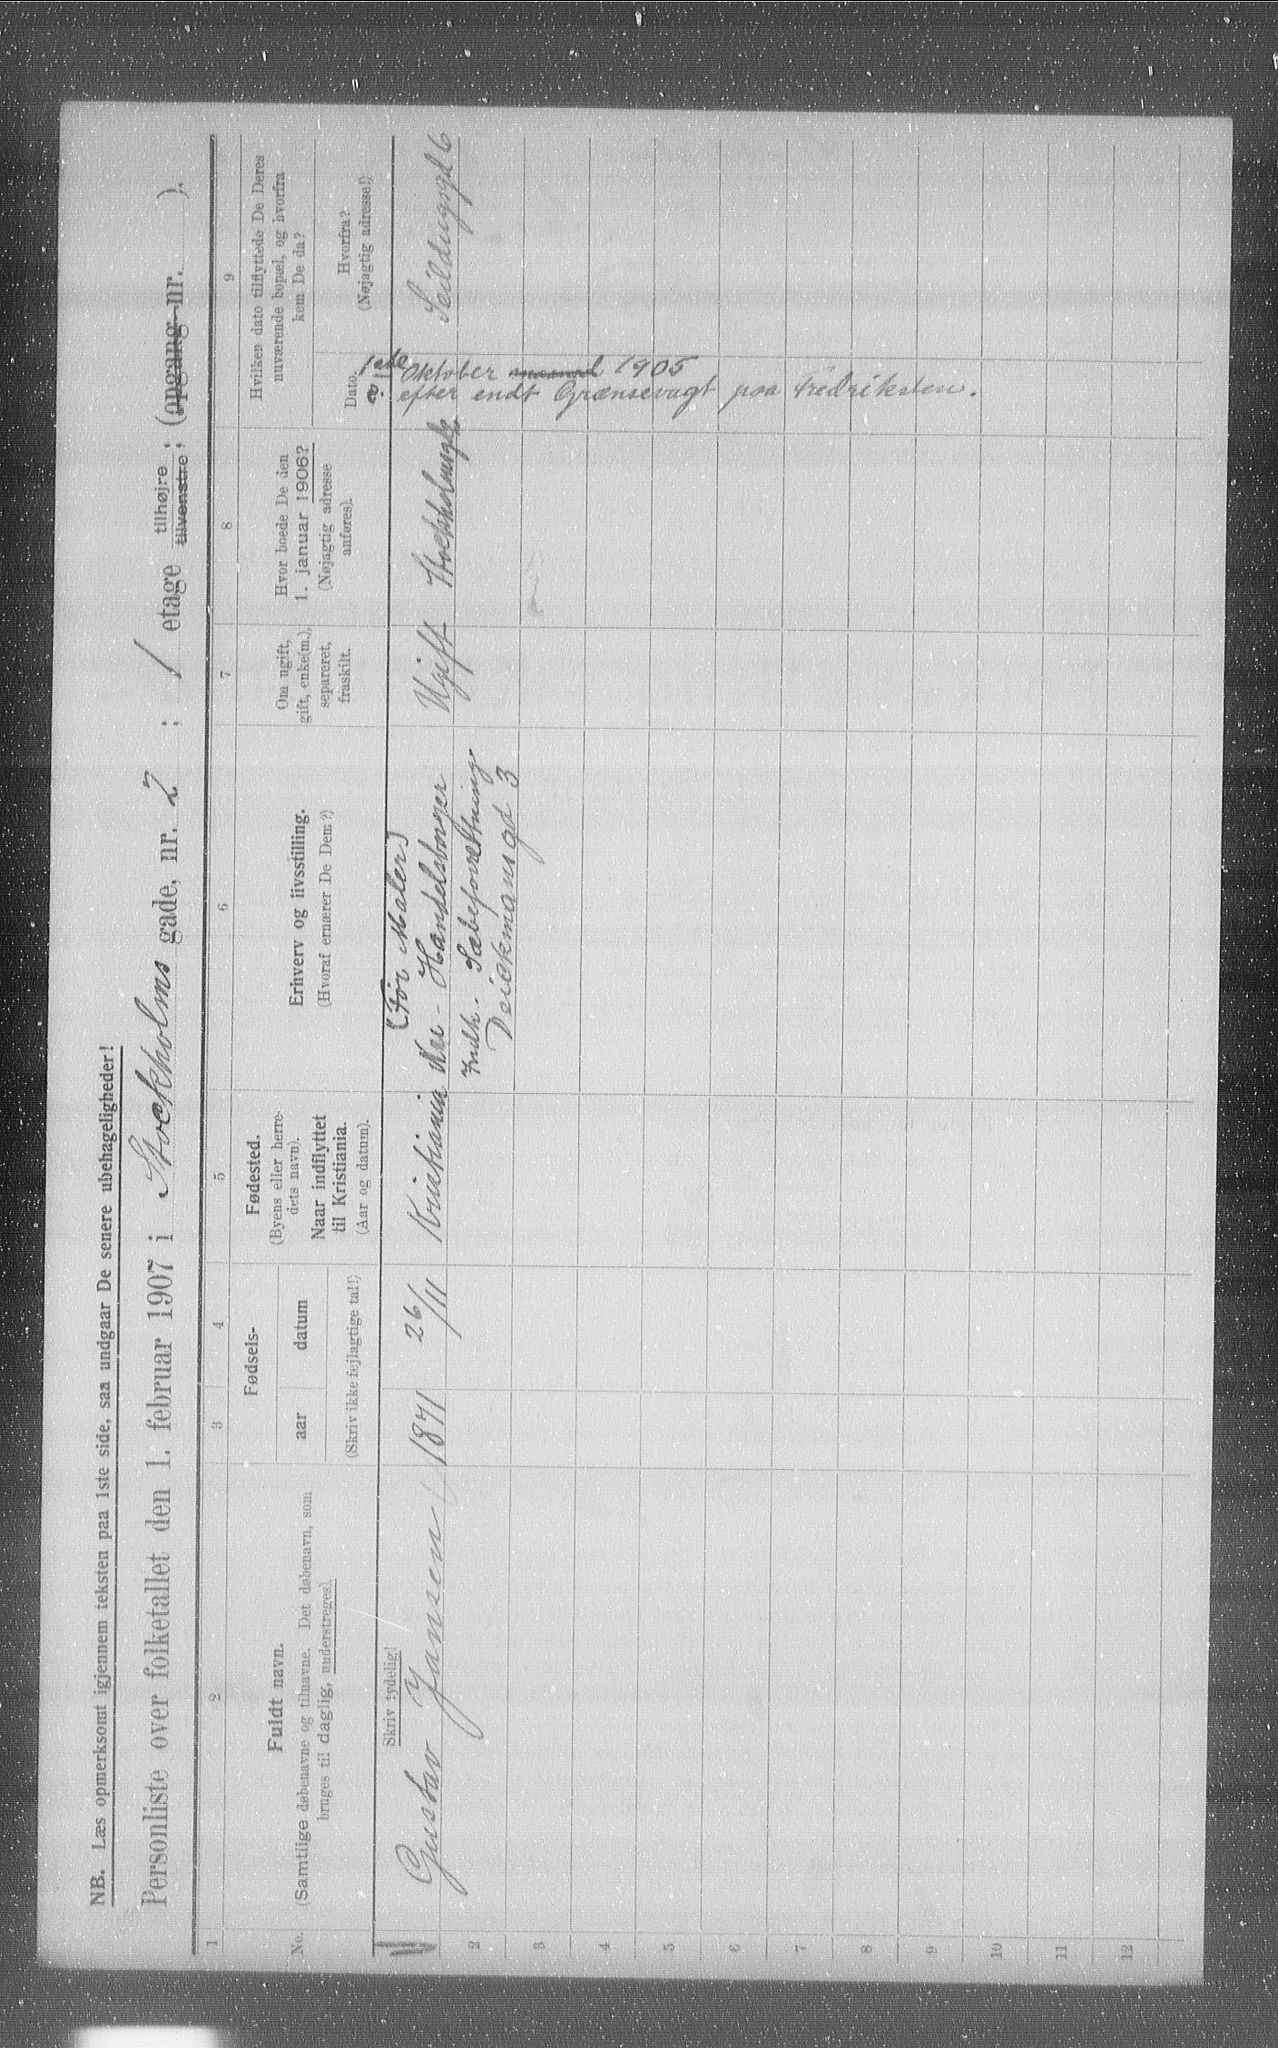 NB. Læs opmerksomt igjennem teksten paa 1ste side, saa undgaar De senere ubehageligheder!
Personliste over folketallet den 1. februar 1907 i Stockholms gade, nr. 2 ; 1 etage tilhøjre tilvenstre ; (opgang nr. ).
1 2 3 4 5 6 7 8 9
No.
Fuldt navn.
(Samtlige døbenavne og tilnavne. Det døbenavn, som
bruges til daglig, understreges).
Skriv tydelig!
Fødsels-
aar datum
(Skriv ikke fejlagtige tal!)
Fødested.
(Byens eller herre-
dets navn).
Naar indflyttet
til Kristiania.
(Aar og datum).
Erhverv og livsstilling.
(Hvoraf ernærer De Dem?)
Om ugift,
gift, enke(m.),
separeret,
fraskilt.
Hvor boede De den
1. januar 1906?
(Nøjagtig adresse
anføres).
Hvilken dato tilflyttede De Deres
nuværende bopæl, og hvorfra
kom De da?
Dato.
Hvorfra?
(Nøjagtig adresse!)
Gustav Jansen
1871
26/11
Kristiania
(Før Maler)
Nu - Handelsborger
Indh. Sæbeforretning
Deickmansgd 3
Ugift
Stockholmsgt 2
1ste Oktober 1905
efter endt Grænsevagt paa Fredriksten.
Seildugsgd 6
2
3
4
5
6
7
8
9
10
11
12